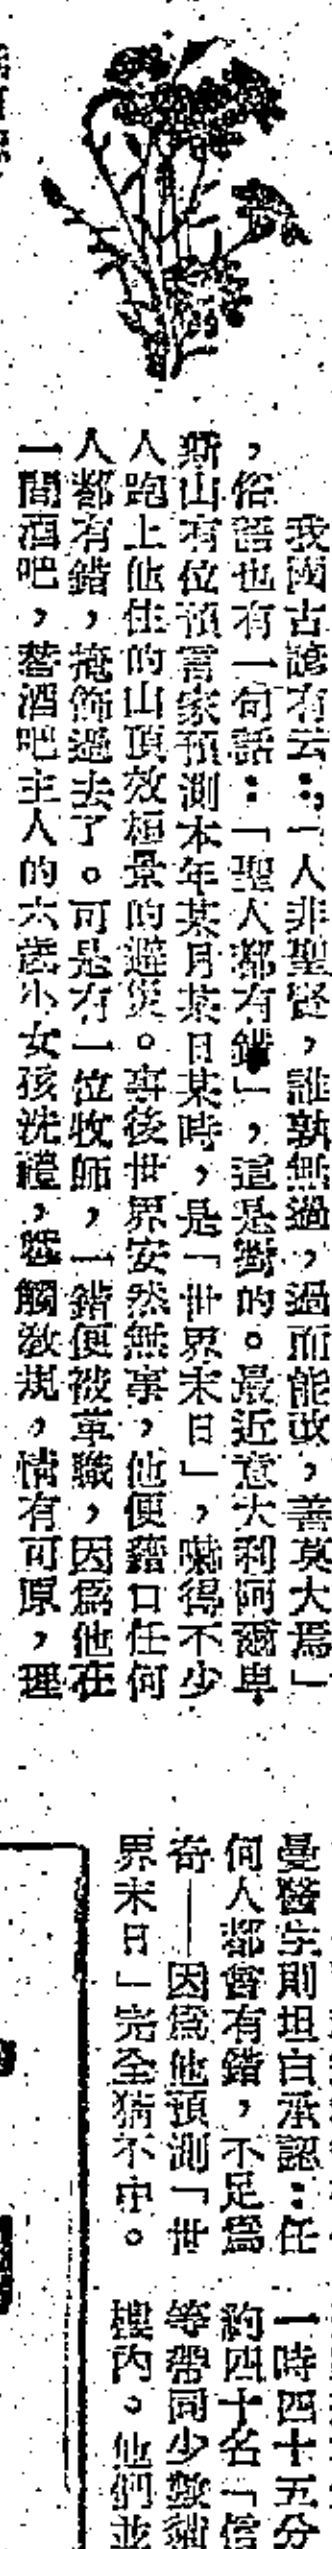 我國古諺有云：「人非聖賢，誰孰無過，過而能改，善莫大焉」
，俗語也有一句話：「聖人都有錯」，這是對的。最近意大利阿爾卑
斯山有位預言家預測本年某月某日某時，是「世界末日」，嚇得不少
人跑上他住的山頂效極景的避災。事後世界安然無事，他便藉口任何
人都有錯，掩飾過去了。可是有一位牧師，一錯便被革職，因爲他在
一間酒吧，替酒吧主人的六歲小女孩洗禮，觸教規，情有可原，理
曼醫生則坦白承認：任
何人都會有錯，不足爲
奇——因爲他預測「世
界末日」完全猜不中。
一時四十五分
約四十名「信
等帶同少數
樓內。他們並